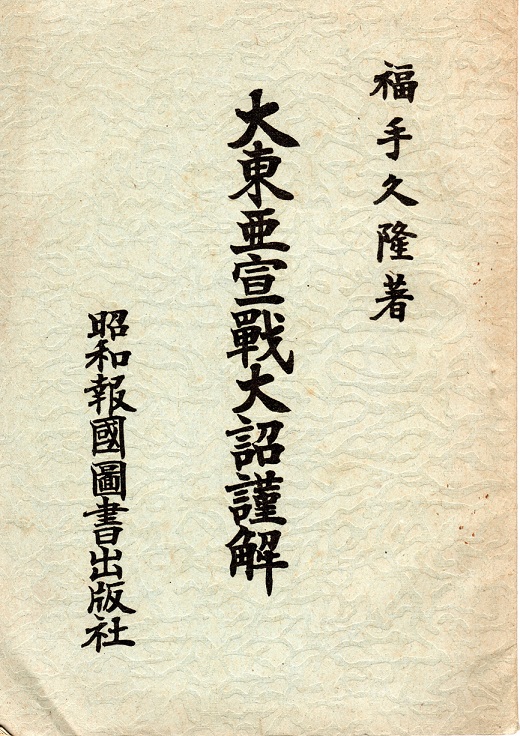 福手久隆著
大東亜宣戰大詔謹解
昭和報國圖書出版社